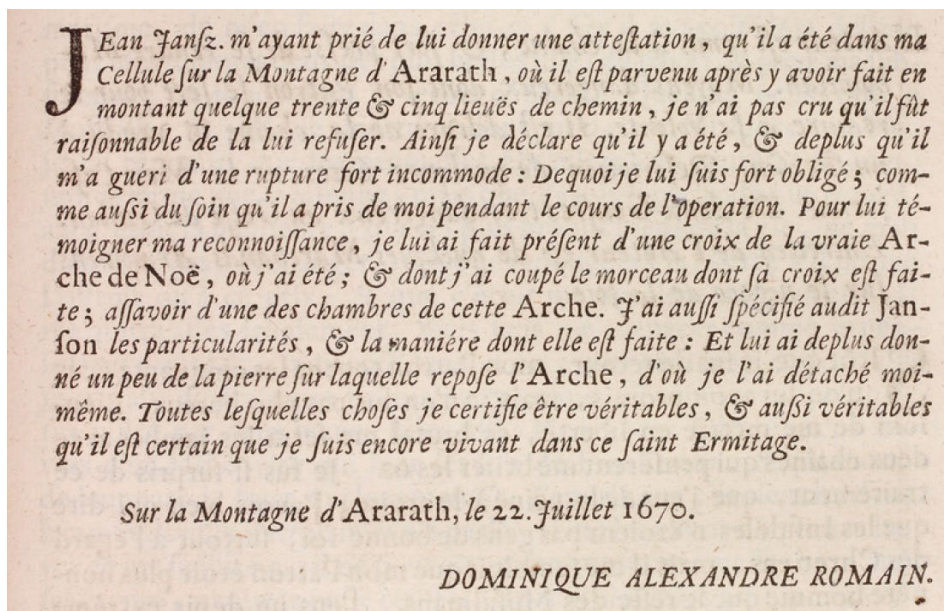 JEan Janſz. m'ayant prié de lui donner une atteſtation, qu'il a été dans ma
Cellule ſur la Montagne d'Ararath, où il eſt parvenu après y avoir fait en
montant quelque trente & cinq lieuës de chemin, je n'ai pas cru qu'il fût
raiſonnable de la lui refuſer. Ainſi je déclare qu'il y a été, & deplus qu'il
m'a gueri d'une rupture fort incommode : Dequoi je lui ſuis fort obligé ; com-
me auſſi du ſoin qu'il a pris de moi pendant le cours de l'operation. Pour lui té-
moigner ma reconnoiſſance, je lui ai fait préſent d'une croix de la vraie Ar-
che de Noë, où j'ai été ; & dont j'ai coupé le morceau dont ſa croix eſt fai-
te ; aſſavoir d'une des chambres de cette Arche. J'ai auſſi ſpécifié audit Jan-
ſon les particularités, & la maniére dont elle eſt faite : Et lui ai deplus don-
né un peu de la pierre ſur laquelle repoſe l'Arche, d'où je l'ai détaché moi-
même. Toutes leſquelles choſes je certifie être véritables, & auſſi véritables
qu'il eſt certain que je ſuis encore vivant dans ce ſaint Ermitage.
Sur la Montagne d'Ararath, le 22. Juillet 1670.
DOMINIQUE ALEXANDRE ROMAIN.